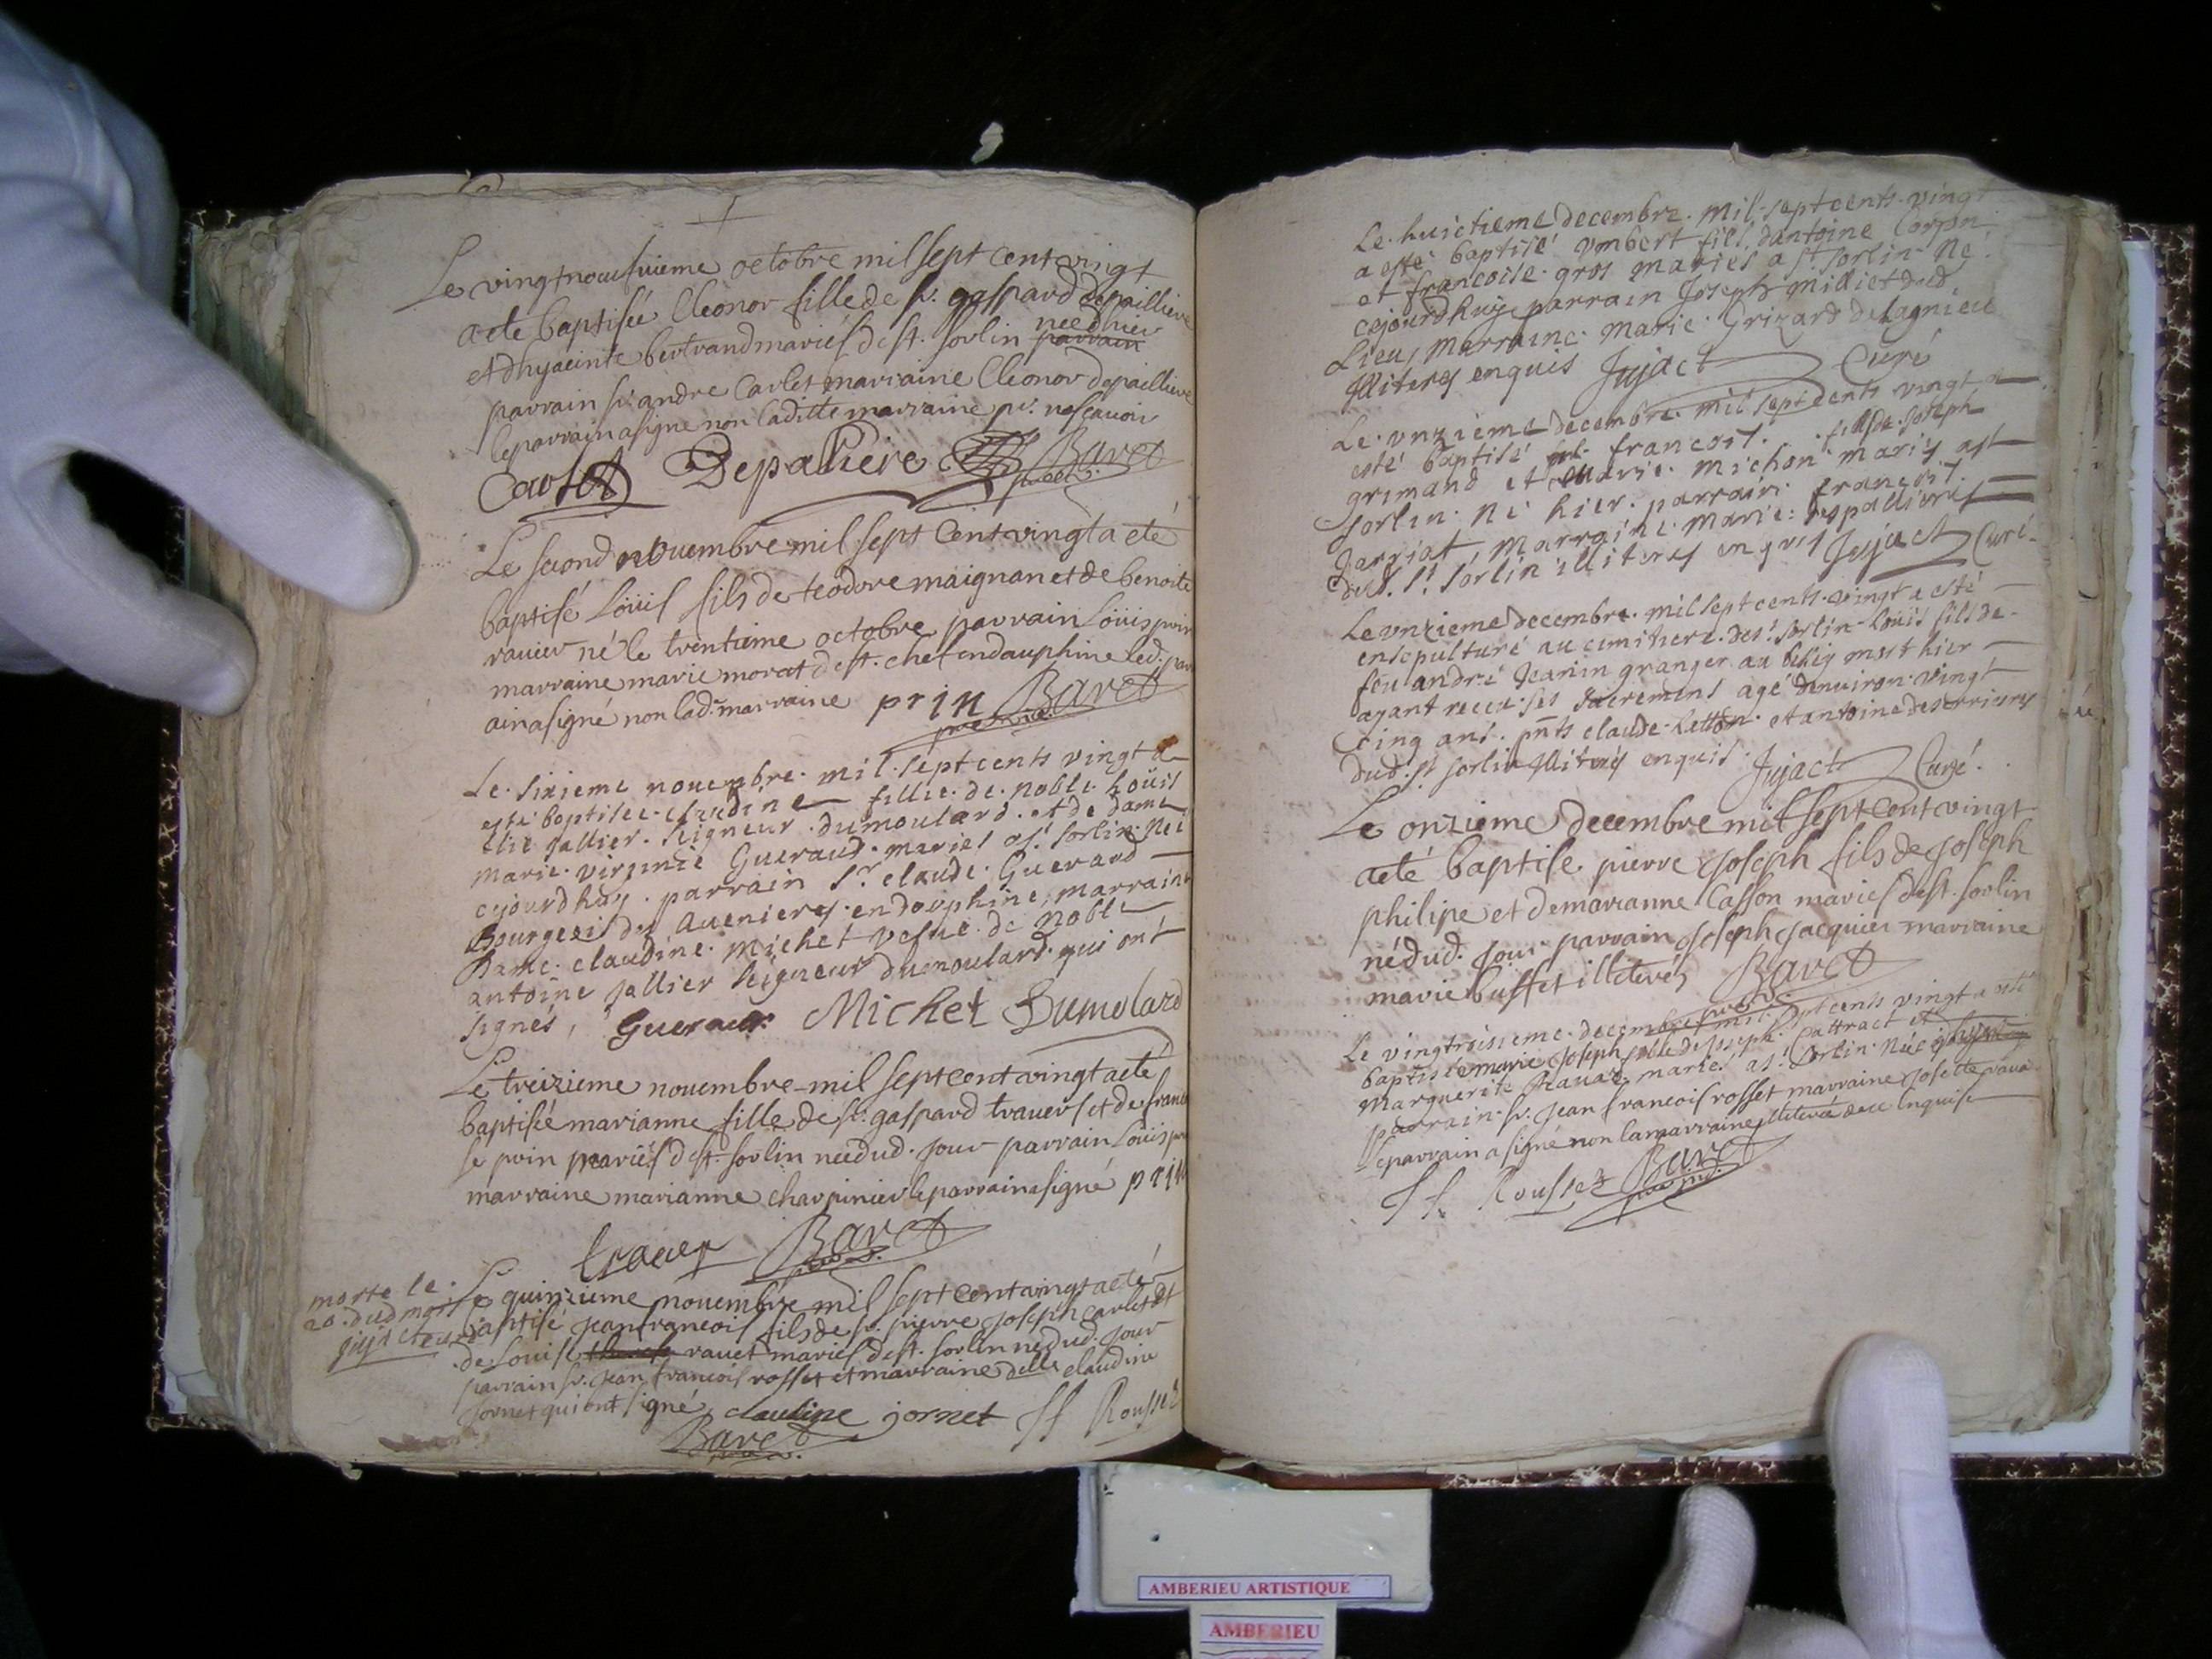 Le vingtneufuieme octobre mil sept cent vingt
a ete baptisée Eleonor fille de sr. gaspard depailliere
et dhyacinte bertrand mariés de st. sorlin parrain
née d hier
parrain sr. andre Carlet marraine Eleonor depailliere
le parrain a signe non laditte marraine pr. ne scavoir
Carlet Depaliere Baret
Le second novembre mil sept cent vingt a eté
baptisé Loüis fils de teodore maignan et de benoite
rauier né le trentieme octobre parrain Loüis prin
marraine marie morat de st. chef en dauphine led. par
ain a signé non lad. marraine prin Baret
Le. sixieme nouembre. mil. sept cents vingt a
esté baptisée claudine fille. de. noble. Loüis
elie jallier. seigneur. dumoulard. et de dame
marie. virginie Gueraud. mariés a st. sorlin. née
cejourdhuy. parrain Sr. claude. Guerard
Bourgeois des Auenieres. en dauphine, marraine
Dame. claudine. Michet vefue. de noble
antoine jallier seigneur dumoulard. qui ont
signés, Gueraud. Michet Dumolard
Le treizieme nouembre mil sept cent vingt a eté
baptisée marianne fille de sr. gaspard trauers et de franc
se prin mariés de st. sorlin née dud. jour parrain Loüis pr
marraine marianne charpinier le parrain a signé prin
trauers Baret
morte le
20. dud mois
jujact curé
Le quinzieme nouembre mil sept cent vingt a eté
baptisé jean francois fils de sr. pierre joseph carlet et
de Louise rauet mariés de st. sorlin né dud. jour
parrain sr. jean francois rosset et marraine delle claudine
jornet qui ont signé claudine jornet Jf Rousset
Baret
Le. huictieme decembre. mil. sept cents. vingt
a esté. baptisé vmbert fils dantoine Corson
et francoise. gros mariés a st sorlin. Né.
cejourdhuy parrain Joseph milliet dud.
Lieu, Marraine. Marie. Grizard de Lagnieu
illiterés enquis Jujact Curé
Le. vnzieme decembre. mil sept cents vingt a
esté baptisé francois. fils de. Joseph
grimand et Marie. Michon mariés a st
sorlin. né hier. parrain. francois.
Jarriat, Marraine Marie. despallieres
dud. St. sorlin illiterés enquis Jujact Curé.
Le vnzieme decembre. mil sept cents. vingt a esté
ensepulturé au cimitiere. de st. sorlin. Loüis fils de.
feu andré Jeanin granger au mort hier
ayant receu. ses sacremens agé denuiron. vingt
cinq ans. pnts claude. et antoine desvrieres
dud. st sorlin illiterés enquis. Jujact Curé.
Le onzieme decembre mil sept cent vingt
a eté baptisé. pierre joseph fils de joseph
philipe et de marianne Casson mariés de st. sorlin
né dud. jour parrain joseph jacquier marraine
marie buffet illiterés Baret
Le vingtroisieme. decembre mil. sept cents vingt a esté
baptisée marie joseph fille de joseph. Cattract et
Marguerite Rauaz mariés a st. sorlin. née
parrain. sr. jean francois rosset marraine josette raua
le parrain a signé non la marraine illiterée de ce enquise
Jf. Rousset Baret
AMBERIEU ARTISTIQUE
AMBERIEU